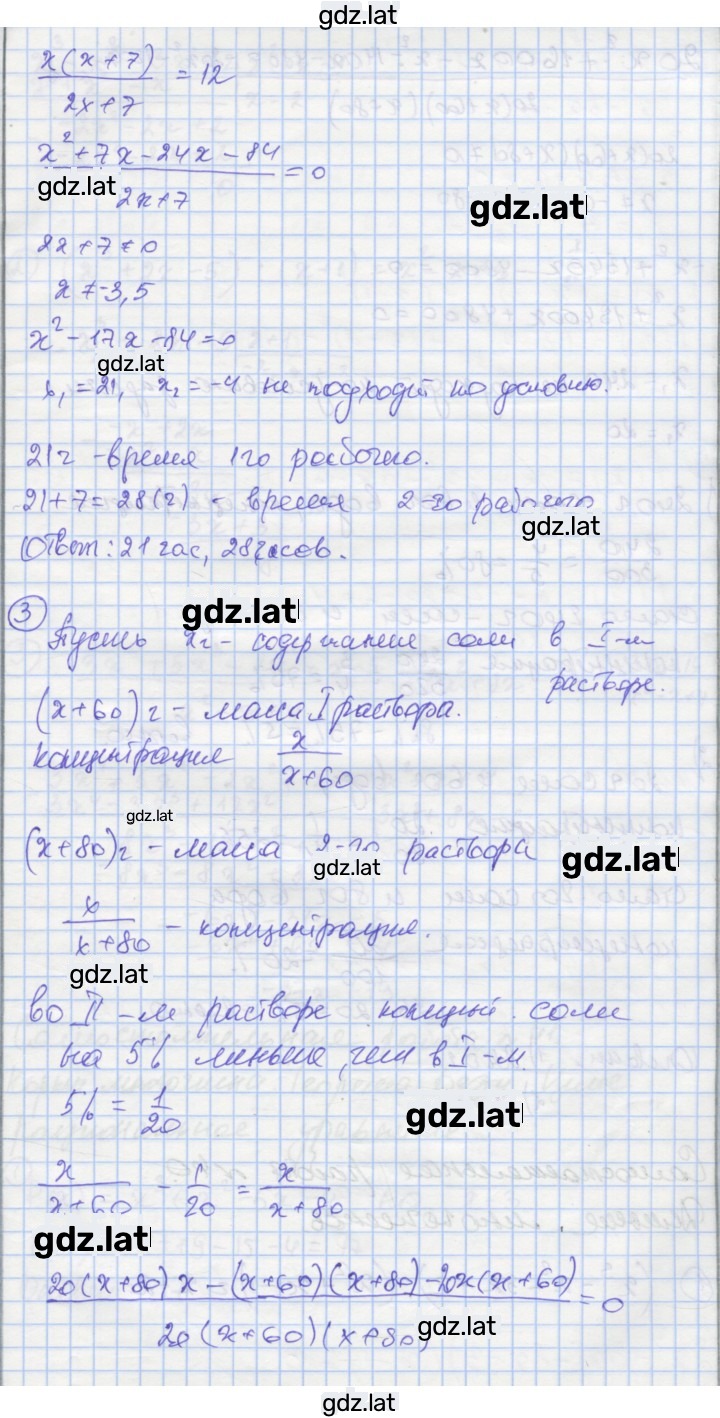 gdz.lat
x(x+7)/2x+7 = 12
x²+7x-24x-84/2x+7 = 0
gdz.lat
gdz.lat
2x+7≠0
x≠-3,5
x²-17x-84=0
gdz.lat
x₁=21, x₂=-4 не подходит по условию.
21ч -время 1го рабочего.
21+7=28(ч) - время 2-го рабочего
gdz.lat
Ответ: 21 час, 28 часов.
3
gdz.lat
Пусть xг - содержание соли в I-м
растворе.
(x+60)г - масса I раствора.
концентрация x/x+60
gdz.lat
(x+80)г - масса 2-го раствора
gdz.lat
x/x+80 - концентрация.
gdz.lat
во II-м растворе концент. соли
на 5% меньше, чем в I-м.
5% = 1/20
gdz.lat
x/x+60 - 1/20 = x/x+80
gdz.lat
20(x+80)x-(x+60)(x+80)-20x(x+60)/20(x+60)(x+80) = 0
gdz.lat
gdz.lat